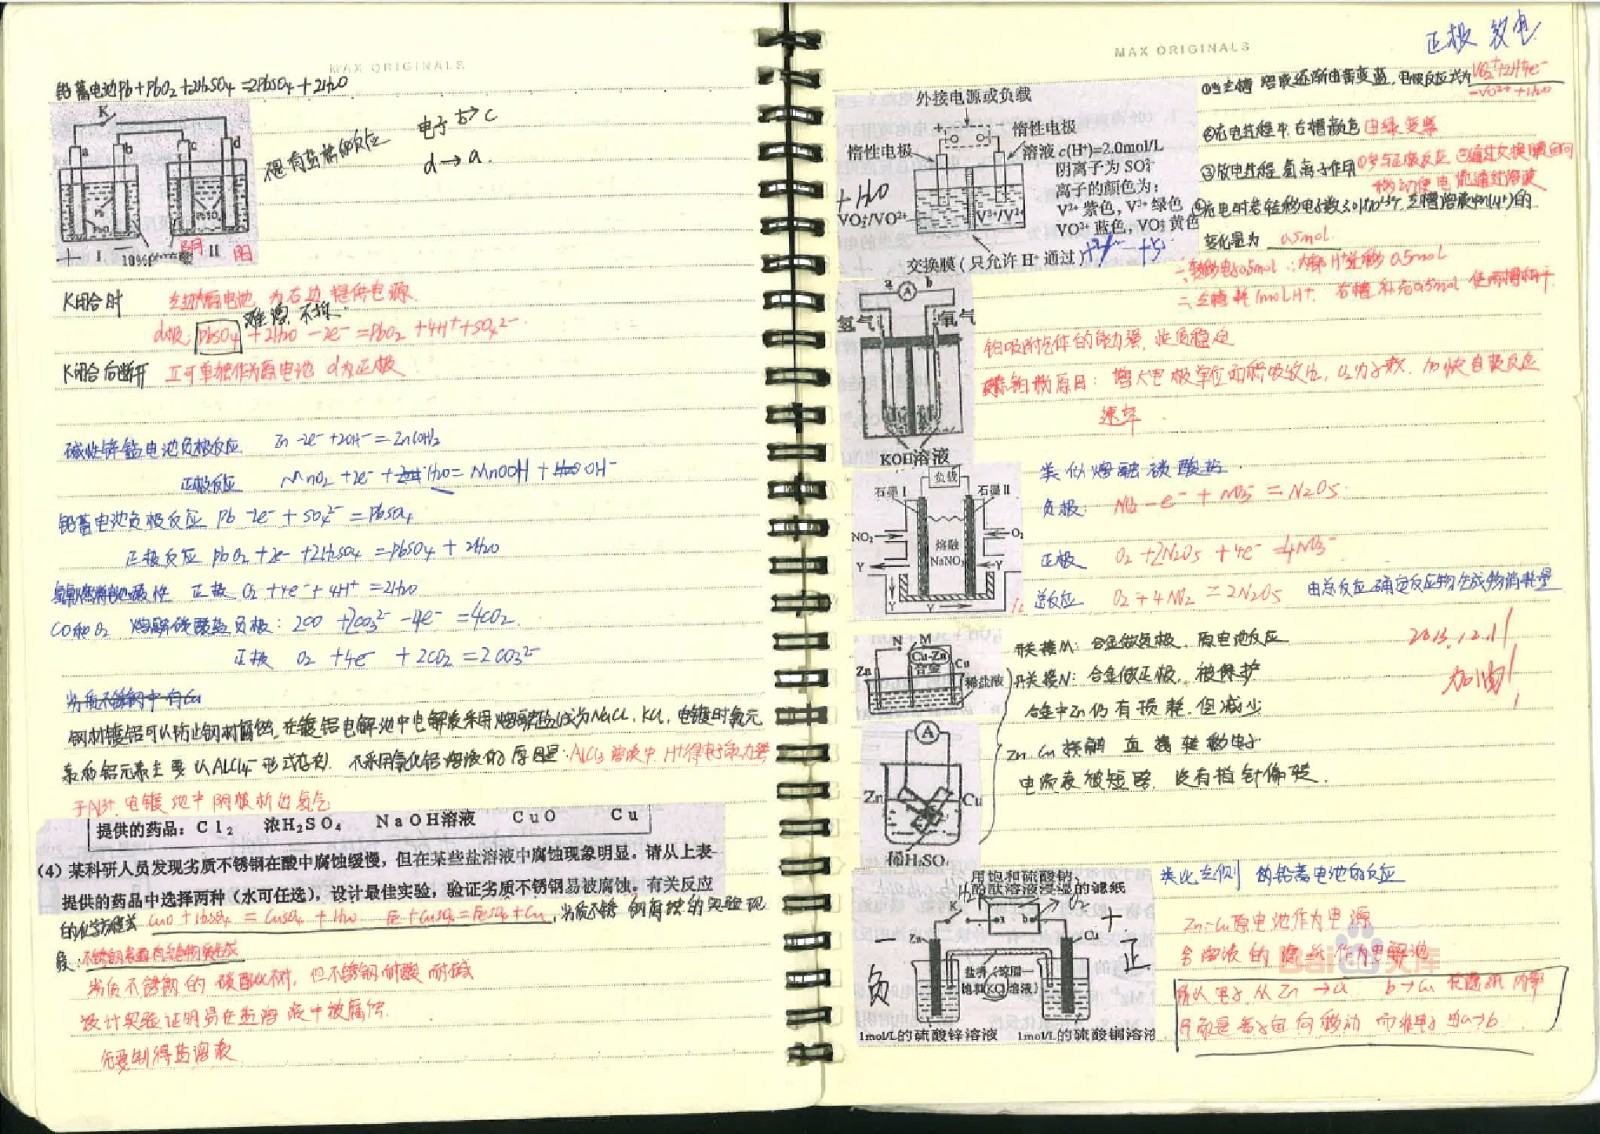 MAX ORIGINALS
铅蓄电池Pb+PbO2+2H2SO4=2PbSO4+2H2O
K
a b c d
Pb PbO2 PbSO4
I 阴 II 阳
电子 b→c
d→a
K闭合时 左边为原电池 为右边提供电源
难溶 不拆
d极 PbSO4+2H2O-2e-=PbO2+4H++SO42-
K闭合后断开 II可单独作为原电池 d为正极
碱性锌锰电池负极反应 Zn-2e-+2OH-=Zn(OH)2
正极反应 MnO2+e-+H2O=MnOOH+OH-
铅蓄电池负极反应 Pb-2e-+SO42-=PbSO4
正极反应 PbO2+2e-+2H2SO4=PbSO4+2H2O
正极 O2+4e-+4H+=2H2O
CO和O2 熔融碳酸盐负极: 2CO+2CO32--4e-=4CO2
正极 O2+4e-+2CO2=2CO32-
劣质不锈钢中有Cu
钢材镀铝可以防止钢材腐蚀,在镀铝电解池中电解液采用熔融盐 NaCl,KCl,电镀时氯元
素和铝元素主要以AlCl4-形式存在 不采用氯化铝溶液的原因是:AlCl3溶液中 H+得电子能力强
于Al3+,电镀池中阴极析出氢气
提供的药品:Cl2 浓H2SO4 NaOH溶液 CuO Cu
(4)某科研人员发现劣质不锈钢在酸中腐蚀缓慢,但在某些盐溶液中腐蚀现象明显。请从上表
提供的药品中选择两种(水可任选),设计最佳实验,验证劣质不锈钢易被腐蚀。有关反应
的化学方程式 CuO+H2SO4=CuSO4+H2O Fe+CuSO4=FeSO4+Cu,劣质不锈钢腐蚀的实验现
象:不锈钢表面有红色物质生成
劣质不锈钢的 但不锈钢耐酸 耐碱
设计实验证明易在盐溶液中被腐蚀
先要制得盐溶液
MAX ORIGINALS
正极 放电
外接电源或负载
惰性电极
惰性电极
溶液c(H+)=2.0mol/L
阴离子为SO42-
离子的颜色为:
V2+紫色,V3+绿色
VO2+蓝色,VO2+黄色
+H2O
VO2+/VO2+
V3+/V2+
交换膜(只允许H+通过)
①当左槽溶液逐渐由黄变蓝,电极反应式为VO2++2H++e-
=VO2++H2O
②充电过程中,右槽颜色由绿变紫
③放电过程氢离子作用①参与正极反应 ②通过交换膜定向
移动使电流通过溶液
变化量为 0.5mol
a A b
氢气
氧气
KOH溶液
铂吸附气体的能力强,性质稳定
镀铂粉原因:增大电极单位面积吸收H2,O2分子数,加快电极反应
速率
负载
石墨I
石墨II
NO2
O2
熔融
NaNO3
Y
Y
Y
类似熔融碳酸盐
负极: NO2-e-+NO3-=N2O5
正极 O2+2N2O5+4e-=4NO3-
总反应 O2+4NO2=2N2O5 由总反应确定反应物生成物消耗量
N M
Cu-Zn
合金
Zn
Cu
稀盐酸
开关接M:合金做负极,原电池反应
开关接N:合金做正极,被保护
合金中Zn仍有损耗,但减少
2013.12.11
加油!
A
Zn
Cu
稀H2SO4
Zn,Cu接触 直接转移电子
电流表被短路,没有指针偏转
用饱和硫酸钠、
酚酞溶液浸湿的滤纸
K
a b
Zn
Cu
负
正
盐桥(琼脂—
饱和KCl溶液)
1mol/L的硫酸锌溶液
1mol/L的硫酸铜溶液
类比左侧的铅蓄电池的反应
Zn-Cu原电池作为电源
含溶液的滤纸作为电解池
所以电子从Zn→a b→Cu 在滤纸内部
只能是离子定向移动 而非电子由a→b
Baidu文库